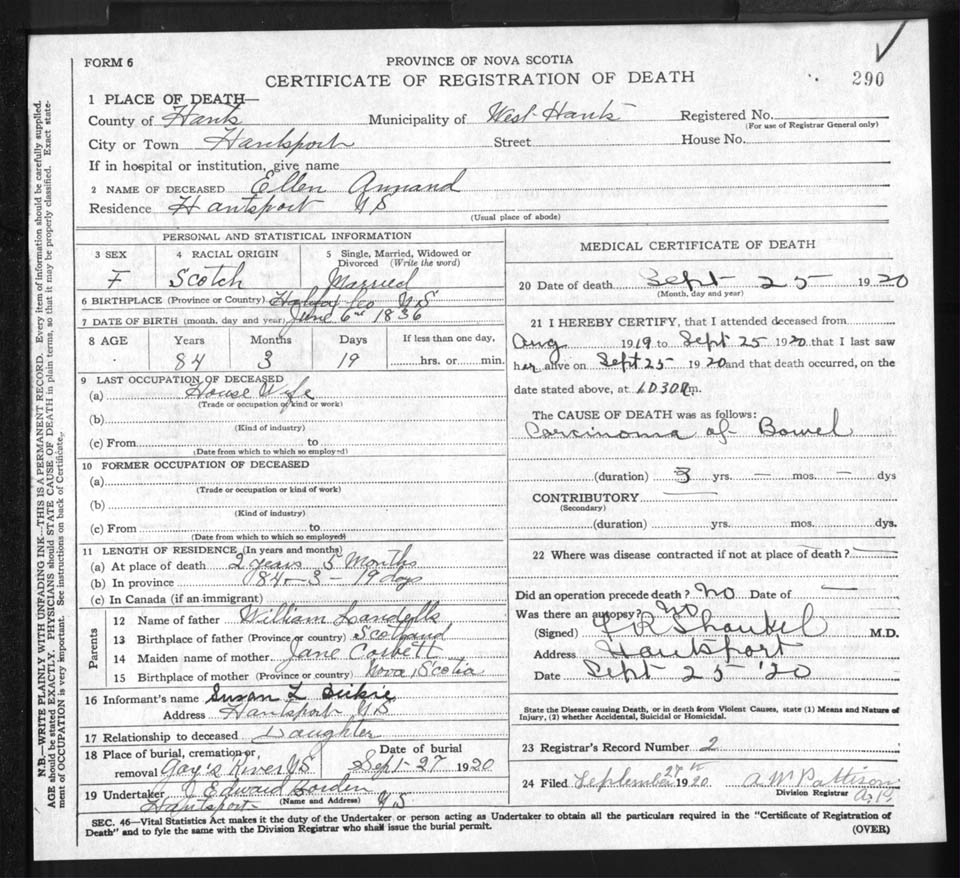 FORM 6
PROVINCE OF NOVA SCOTIA
CERTIFICATE OF REGISTRATION OF DEATH
290
1 PLACE OF DEATH—
County of Hants Municipality of West Hants Registered No.
(For use of Registrar General only)
City or Town Hantsport Street House No.
If in hospital or institution, give name
2 NAME OF DECEASED Ellen Annand
Residence Hantsport NS
(Usual place of abode)
PERSONAL AND STATISTICAL INFORMATION
3 SEX 4 RACIAL ORIGIN 5 Single, Married, Widowed or Divorced (Write the word)
F Scotch Married
6 BIRTHPLACE (Province or Country) Halifax Co NS
7 DATE OF BIRTH (month, day and year) June 6th 1836
8 AGE Years Months Days If less than one day,
84 3 19 hrs. or min.
9 LAST OCCUPATION OF DECEASED
(a) House Wife
(Trade or occupation or kind or work)
(b)
(Kind of industry)
(c) From to
(Date from which to which so employed)
10 FORMER OCCUPATION OF DECEASED
(a)
(Trade or occupation or kind of work)
(b)
(Kind of industry)
(c) From to
(Date from which to which so employed)
11 LENGTH OF RESIDENCE (In years and months)
(a) At place of death 2 years 5 Months
(b) In province 84 - 3 - 19 days
(c) In Canada (if an immigrant)
Parents
12 Name of father William Landells
13 Birthplace of father (Province or country) Scotland
14 Maiden name of mother Jane Corbett
15 Birthplace of mother (Province or country) Nova Scotia
16 Informant's name Susan L Dickie
Address Hantsport NS
17 Relationship to deceased Daughter
18 Place of burial, cremation or removal Gay's River NS
Date of burial Sept 27 1920
19 Undertaker J Edward Borden
(Name and Address)
Hantsport NS
MEDICAL CERTIFICATE OF DEATH
20 Date of death Sept 25 1920
(Month, day and year)
21 I HEREBY CERTIFY, that I attended deceased from
Aug 1919 to Sept 25 1920 that I last saw
her alive on Sept 25 1920 and that death occurred, on the
date stated above, at 1030 m.
The CAUSE OF DEATH was as follows:
Carcinoma of Bowel
(duration) 3 yrs. – mos. – dys
CONTRIBUTORY —
(Secondary)
(duration) yrs. mos. dys.
22 Where was disease contracted if not at place of death? —
Did an operation precede death? No Date of —
Was there an autopsy? No
(Signed) Shankel M.D.
Address Hantsport
Date Sept 25 '20
State the Disease causing Death, or in death from Violent Causes, state (1) Means and Nature of
Injury, (2) whether Accidental, Suicidal or Homicidal.
23 Registrar's Record Number 2
24 Filed September 27th 1920 A.W. Pattison
Division Registrar
SEC. 46—Vital Statistics Act makes it the duty of the Undertaker or person acting as Undertaker to obtain all the particulars required in the "Certificate of Registration of
Death" and to fyle the same with the Division Registrar who shall issue the burial permit. (OVER)
N.B.—WRITE PLAINLY WITH UNFADING INK—THIS IS A PERMANENT RECORD. Every item of information should be carefully supplied.
AGE should be stated EXACTLY. PHYSICIANS should STATE CAUSE OF DEATH in plain terms, so that it may be properly classified. Exact state-
ment of OCCUPATION is very important. See instructions on back of Certificate.